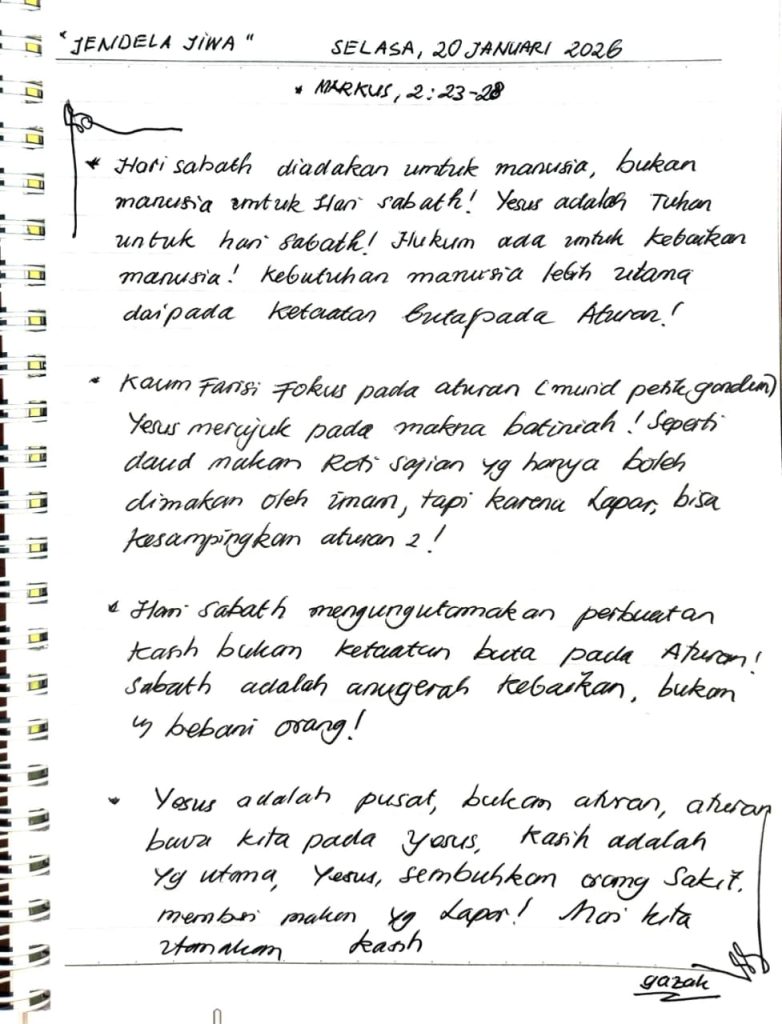 "JENDELA JIWA" SELASA, 20 JANUARI 2026
* MARKUS, 2:23-28
* Hari sabath diadakan umtuk manusia, bukan
manusia untuk Hari sabath! Yesus adalah Tuhan
untuk hari sabath! Hukum ada untuk kebaikan
manusia! kebutuhan manusia lebih utama
daripada ketaatan buta pada Aturan!
* Kaum Farisi Fokus pada aturan (murid petik gandum)
Yesus merujuk pada makna batiniah! Seperti
daud makan Roti sajian yg hanya boleh
dimakan oleh imam, tapi karena Lapar, bisa
kesampingkan aturan 2!
* Hari sabath mengungutamakan perbuatan
kasih bukan ketaatan buta pada Aturan!
sabath adalah anugerah kebaikan, bukan
bebani orang!
* Yesus adalah pusat, bukan aturan, aturan
bawa kita pada Yesus, kasih adalah
yg utama, Yesus, sembuhkan orang sakit.
memberi makan yg Lapar! Mari kita
utamakan kasih
gazah